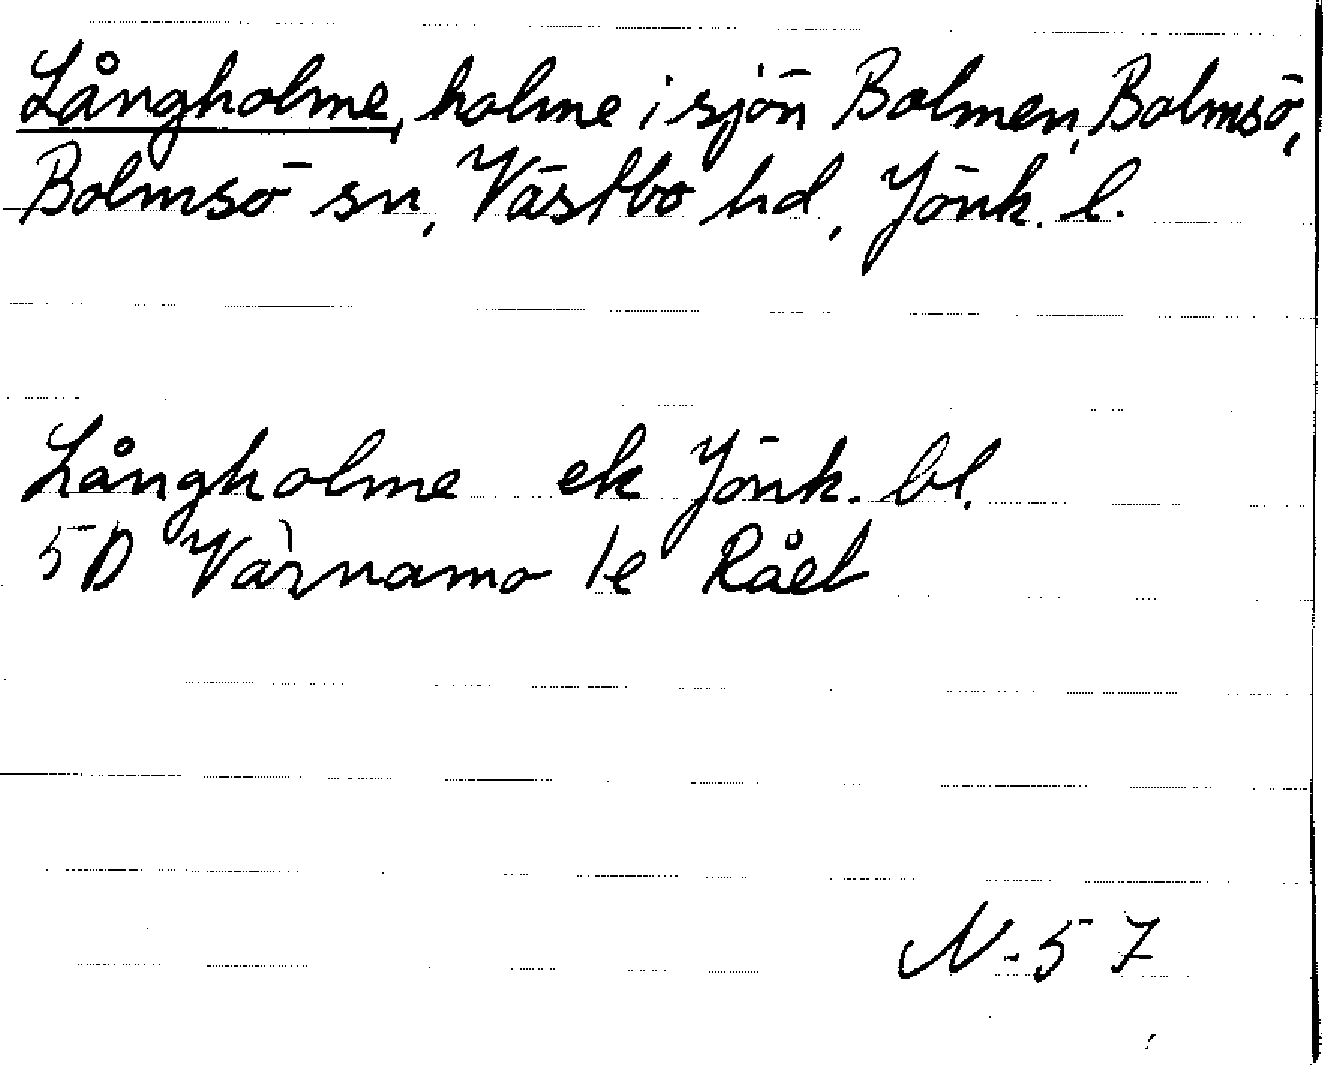 Långholme, holme i sjön Bolmen, Bolmsö,
Bolmsö sn, Västbo hd, Jönk. l.
Långholme ek Jönk. bl.
5D Värnamo 1e Råel
N-57